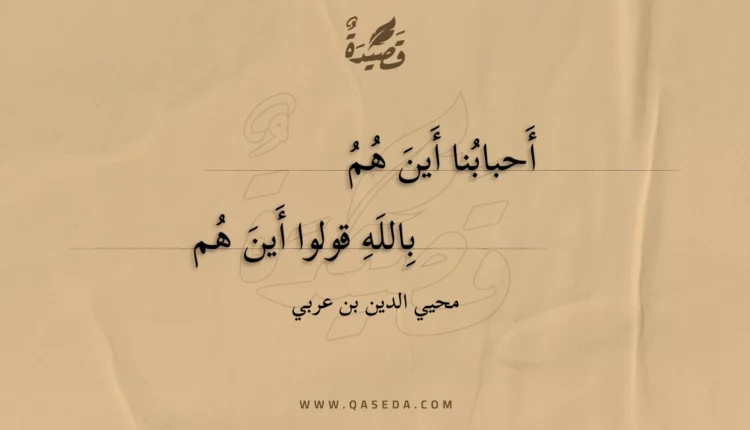 قَصِيْدَةٌ
أَحبابُنا أَينَ هُمُ
بِاللَهِ قولوا أَينَ هُم
محيي الدين بن عربي
WWW.QASEDA.COM